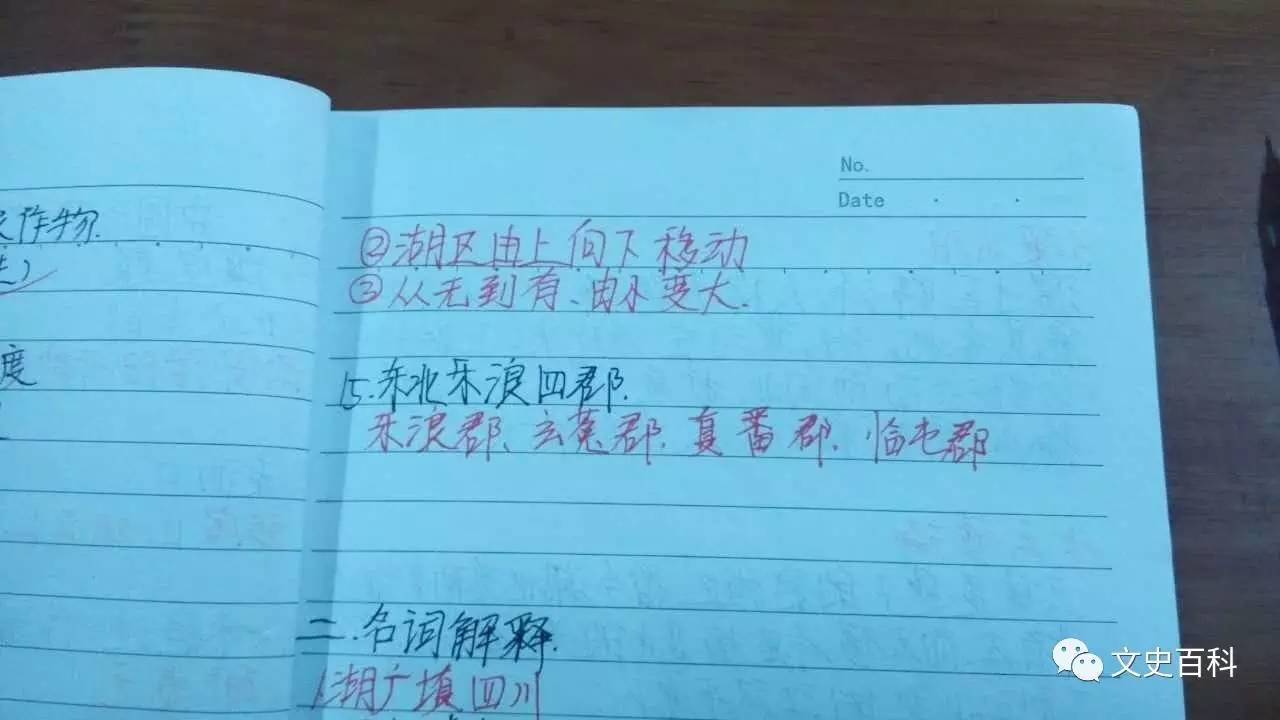 作物.
度
No.
Date
②湖区由上向下移动
③从无到有、由小变大.
15.东北乐浪四郡.
乐浪郡、玄菟郡、真番郡、临屯郡
二.名词解释.
1.湖广填四川
文史百科